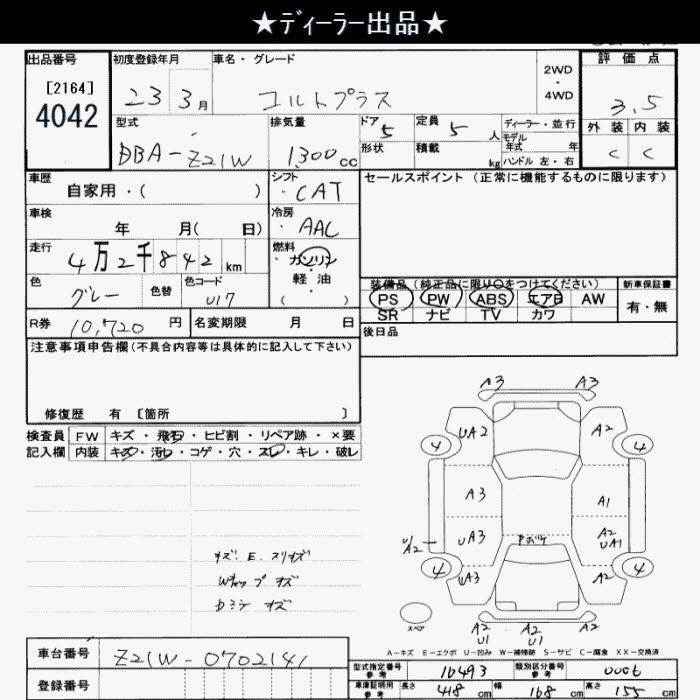 ★ディーラー出品★
出品番号
[2164]
4042
初度登録年月
23 3月
車名・グレード
コルトプラス
2WD
・
4WD
評価点
3.5
外装 内装
C C
型式
DBA-Z21W
排気量
1,300cc
ドア
5
形状
定員
5人
積載
kg
ディーラー・並行
モデル
年式 年
ハンドル 左・右
車歴
自家用・( )
シフト
・CAT
セールスポイント (正常に機能するものに限ります)
車検
年 月( 日)
冷房
・AAC
走行
4万2千842km
燃料
・ガソリン
軽油
・( )
色
グレー
色替
色コード
U17
装備品(純正品に限り○をつけてください)
PS PW ABS エアB AW
SR ナビ TV カワ
新車保証書
有・無
R券
10,720円
名変期限 月 日
後日品
注意事項申告欄(不具合内容等は具体的に記入して下さい)
修復歴 有 [箇所 ]
検査員
記入欄
FW キズ・飛石・ヒビ割・リペア跡・×要
内装 キズ・汚れ・コゲ・穴・スレ・キレ・破レ
A3 A3
UA2 A2
4 4
A3 A1
UA3
A2
UA1
A2
4 4
UA3 A2
スペア
A2 A2 A2
U1 U1
A-キズ E-エクボ U-凹み W-補修跡 S-サビ C-腐食 XX-交換済
車台番号
Z21W-0702141
登録番号
型式指定番号
参考
16493
類別区分番号
参考
0006
車庫証明用
参考
長さ 418 cm
幅 168 cm
高さ 155 cm